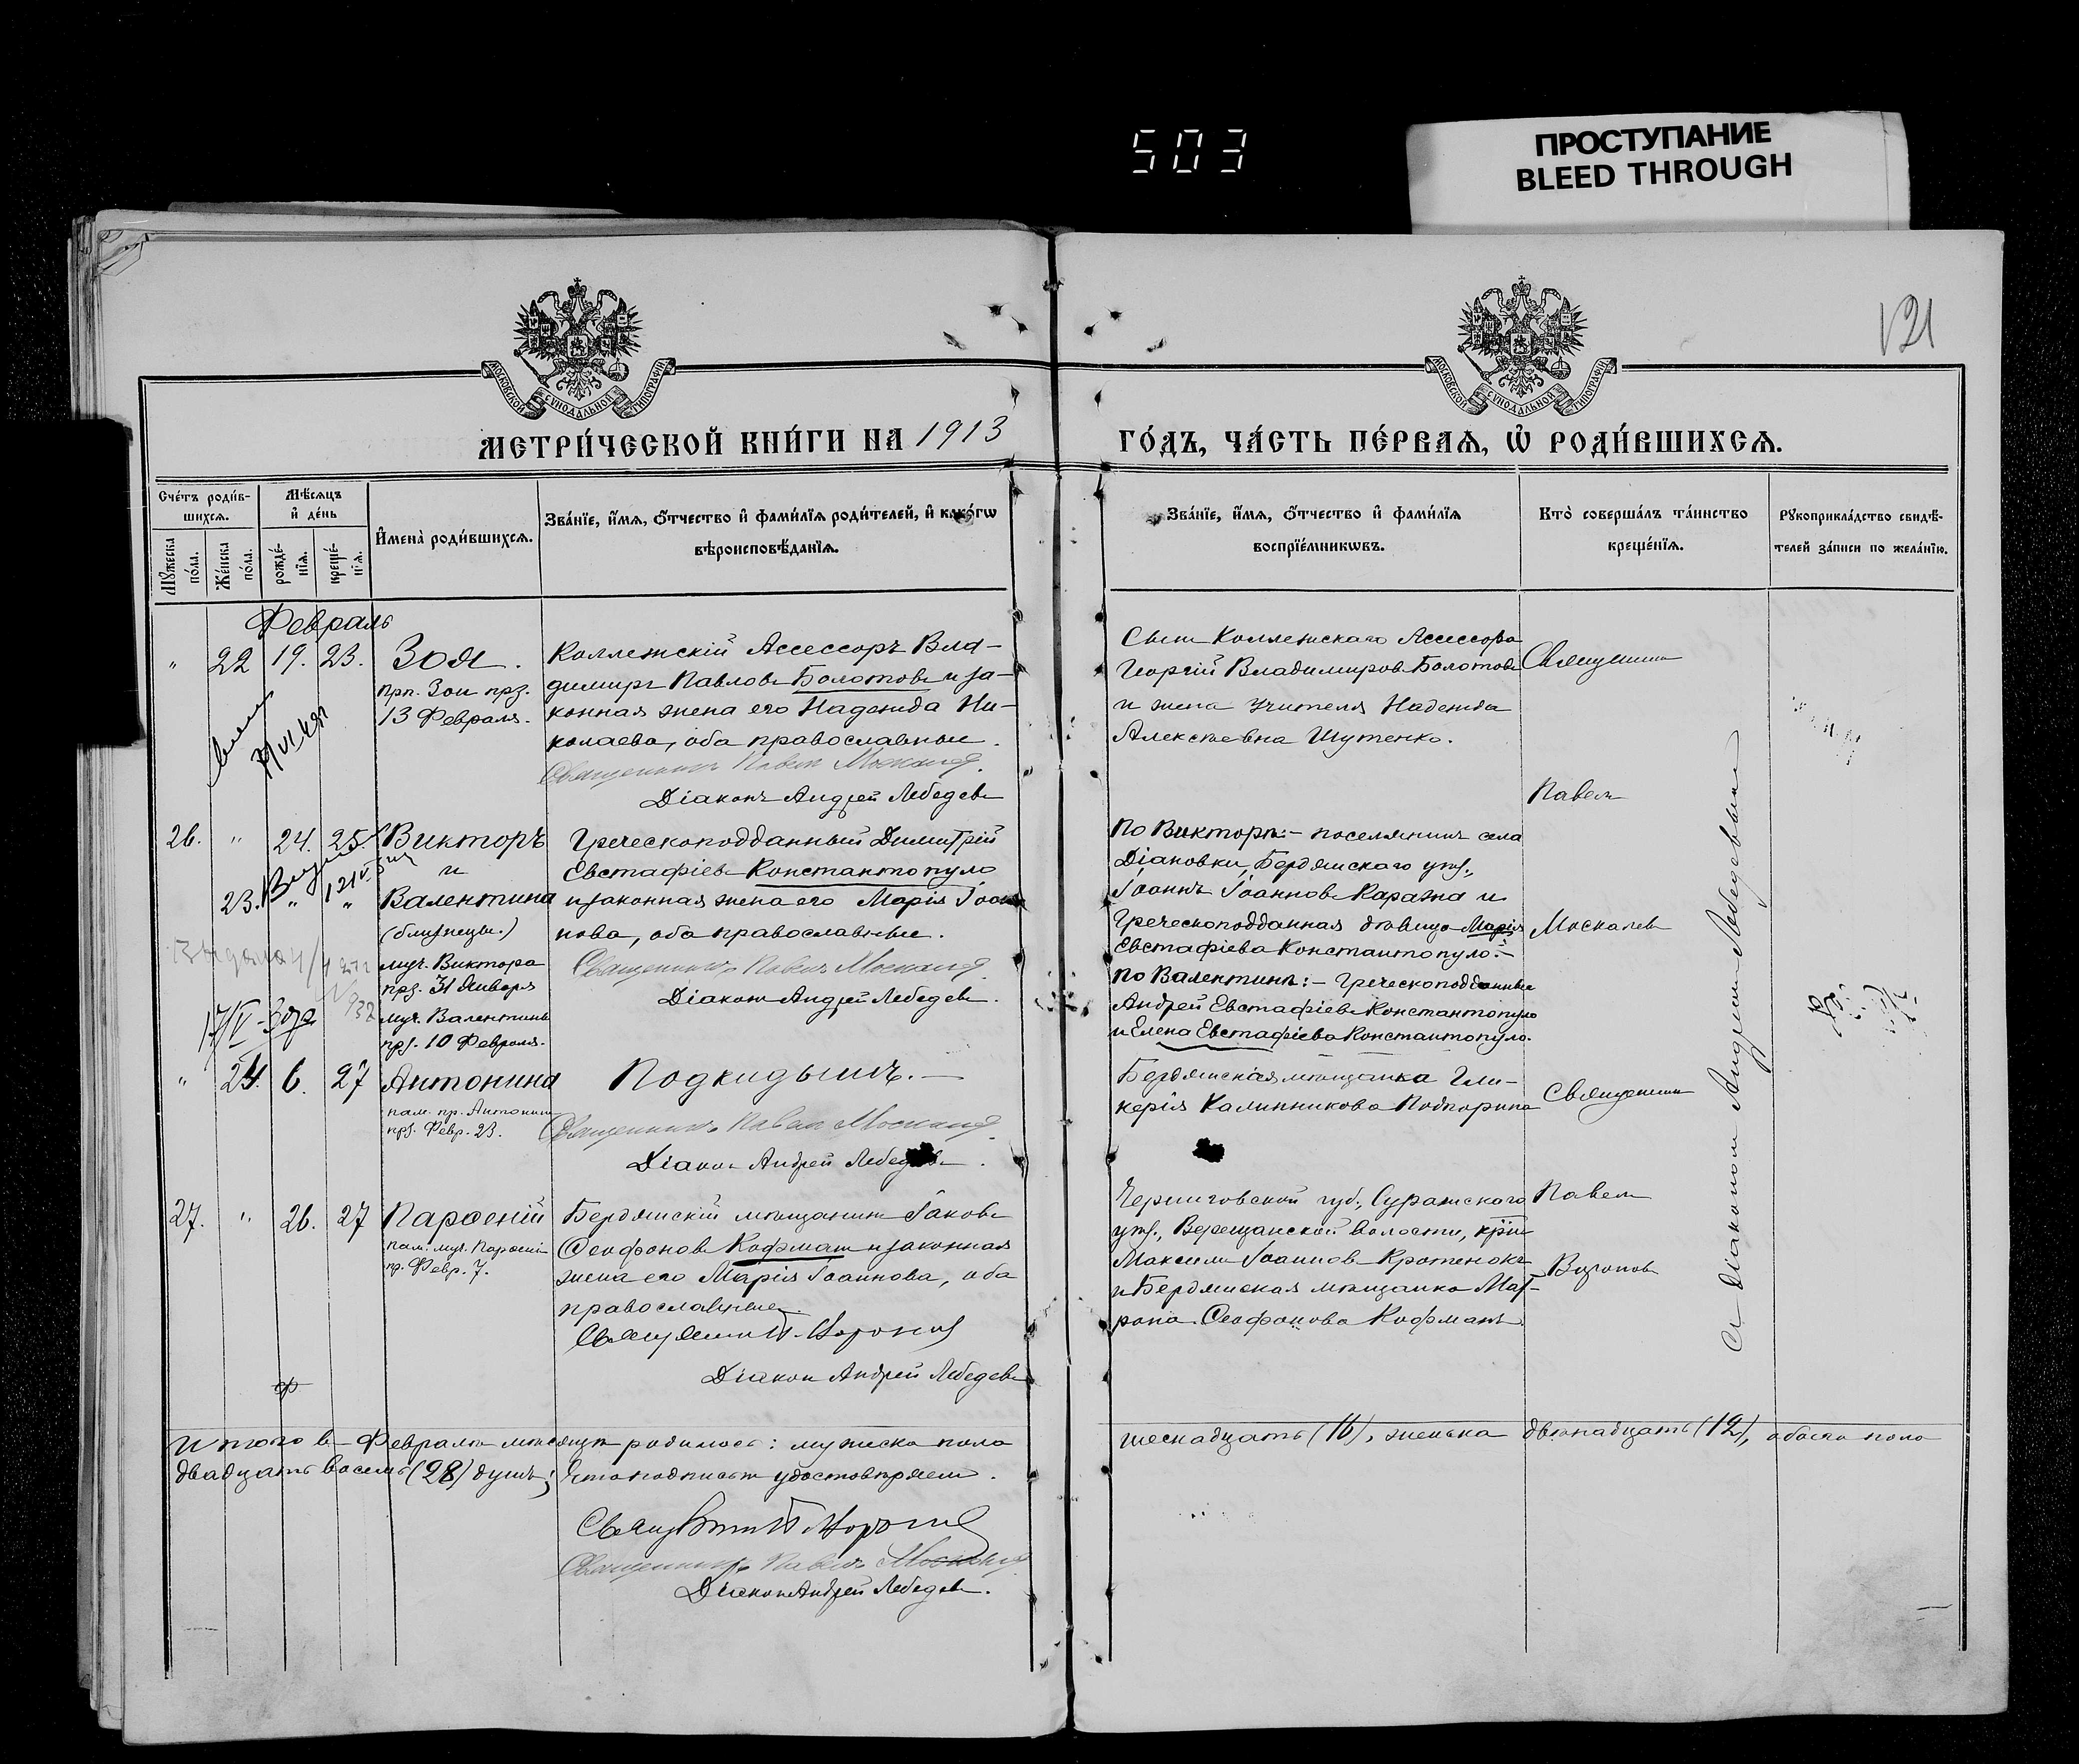 503
ПРОСТУПАНИЕ
BLEED THROUGH
121
МОСКОВСКОЙ СУНОДАЛЬНОЙ ТИПОГРАФІИ
МОСКОВСКОЙ СУНОДАЛЬНОЙ ТИПОГРАФІИ
МЕТРИ́ЧЕСКОЙ КНИ́ГИ НА 1913
ГО́ДЪ, ЧА́СТЬ ПЕ́РВАѦ, Ѡ҆ РОДИ́ВШИХСѦ.
Сче́тъ роди́в-
шихсѧ.
Мꙋ́жеска по́ла.
Же́нска по́ла.
Мѣ́сѧцъ
и҆ де́нь
рожде́-
нїѧ.
креще́-
нїѧ.
И҆мена̀ роди́вшихсѧ.
Зва́нїе, и҆́мѧ, ѻ҆́тчество и҆ фами́лїѧ роди́телей, и҆ како́гѡ
вѣроисповѣ́данїѧ.
Зва́нїе, и҆́мѧ, ѻ҆́тчество и҆ фами́лїѧ
воспрїе́мникѡвъ.
Кто̀ соверша́лъ та́инство
креще́нїѧ.
Рꙋкоприкла́дство свидѣ́-
телей за́писи по жела́нїю.
Февраль
" 22 19. 23. Зоя.
прп. Зои прз.
13 Февраля.
Коллежскій Ассессоръ Вла-
димиръ Павловъ Болотовъ и за-
конная жена его Надежда Ни-
колаева, оба православные.
Священникъ Павелъ Москалев
Діаконъ Андрей Лебедевъ
Сынъ Коллежскаго Ассессора
Георгій Владимировъ Болотовъ
и жена учителя Надежда
Алексѣевна Шутенко.
Священникъ
Павелъ
Москалевъ
26. " 24. 25. Викторъ
и
23. " " Валентина
(близнецы.)
муч. Виктора
прз. 31 Января
муч. Валентины
прз. 10 Февраля.
Греческоподданный Димитрій
Евстафіевъ Константопуло
и законная жена его Марія Іоан
нова, оба православные.
Священникъ Павелъ Москалев
Діаконъ Андрей Лебедевъ.
По Викторѣ:- поселянинъ села
Діановки, Бердянскаго уѣз.,
Іоаннъ Іоанновъ Каража и
Греческоподданная дѣвица Марія
Евстафіева Константопуло:-
по Валентинѣ:- Греческоподданные
Андрей Евстафіевъ Константопуло
и Елена Евстафіева Константопуло.
" 24. 6. 27 Антонина
пам. пр. Антонины
прз. Февр. 23.
Подкидышъ.-
Священникъ Павелъ Москалев
Діаконъ Андрей Лебедевъ.
Бердянская мѣщанка Гли-
керія Калинникова Подпорина
Священникъ
27. " 26. 27 Парѳеній
пр. Февр. 7.
Бердянскій мѣщанинъ Іаковъ
Ѳеофановъ Кофманъ и законная
жена его Марія Іоаннова, оба
православные.
Діаконъ Андрей Лебедевъ
Черниговской губ., Суражского
уѣз., Верещанской волости, кр-нъ
Максимъ Іоанновъ Кротенокъ
и Бердянская мѣщанка Мат-
рона Ѳеофанова Кофманъ.
Павелъ
Вороновъ
Съ діакономъ Андреемъ Лебедевымъ
Итого въ Февралѣ мѣсяцѣ родилось: мужеска пола
шеснадцать (16), женска двѣнадцать (12), обоего пола
двадцать восемь (28) душъ; Что подписью удостовѣряемъ.
Священникъ Павелъ Москалев
Діаконъ Андрей Лебедевъ.